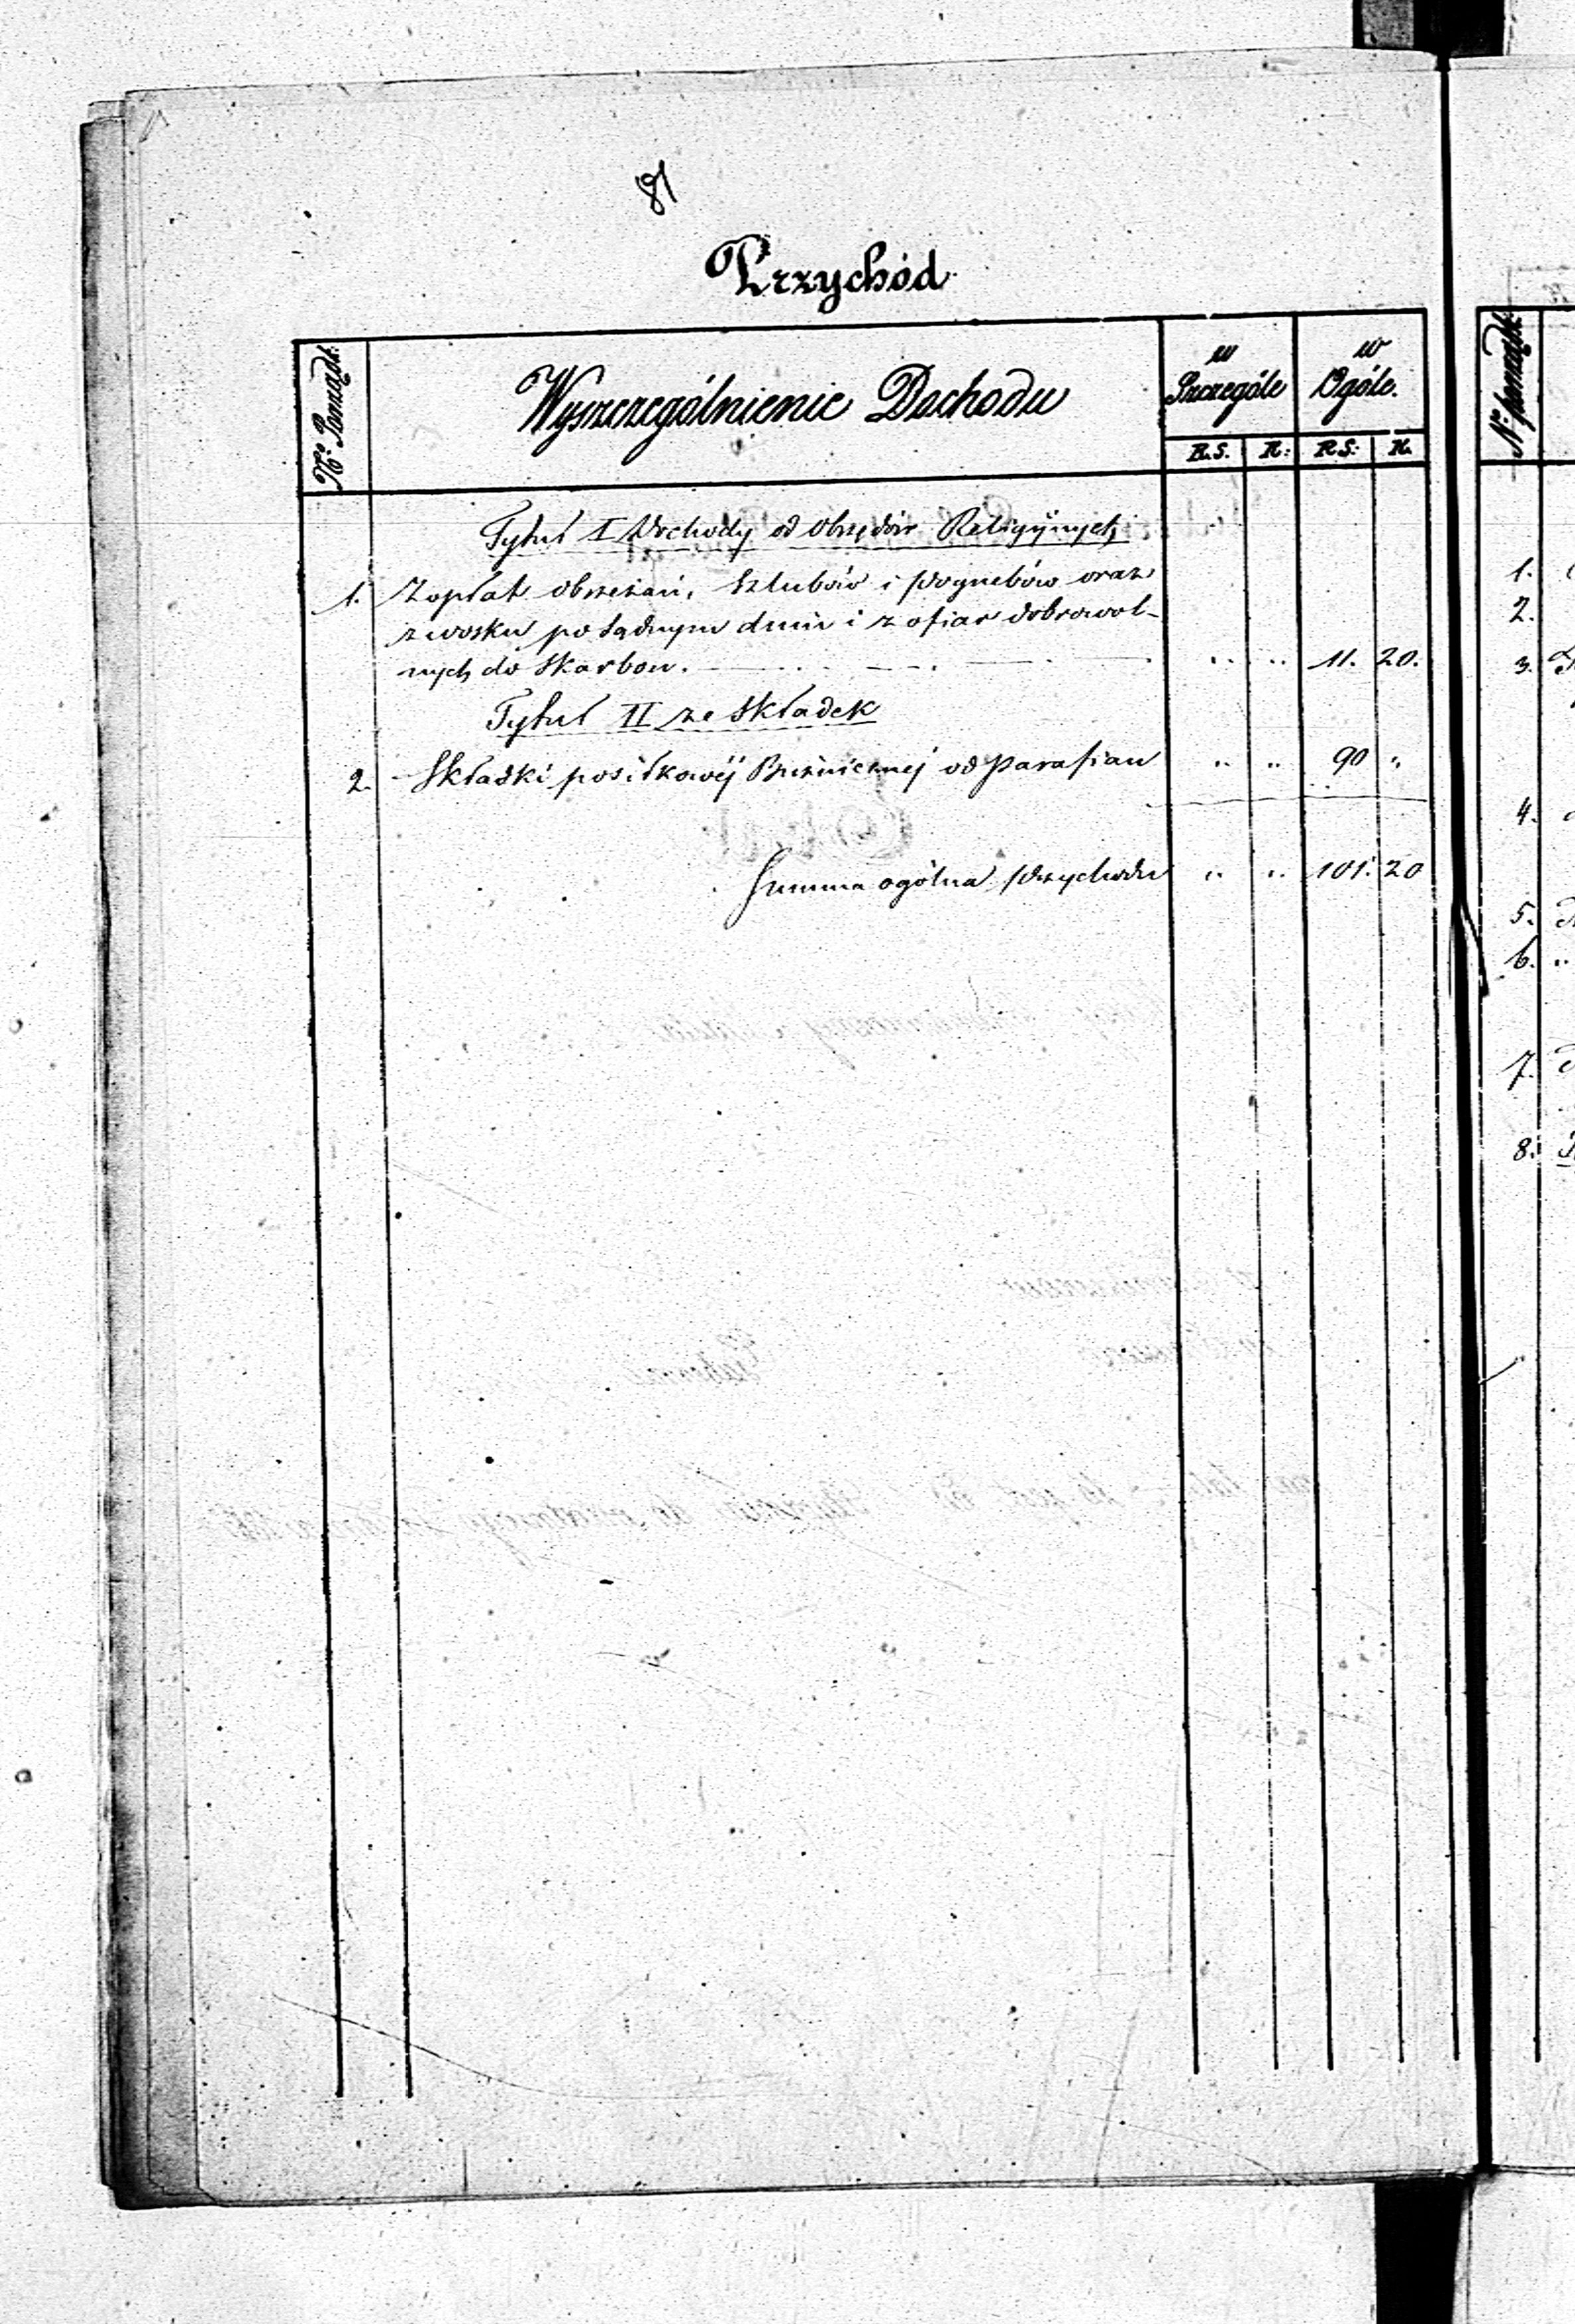 81
Przychód
No Porządk.
Wyszczególnienie Dochodu
w Szczególe
w Ogóle.
R.S. K: R.S: K.
Tytuł I Dochody od Obrzędów Religijnych
1. Z opłat obrzezań, Szlubów i pogrzebów oraz
z wosku po Sądnym dniu i z ofiar dobrowol-
nych do Skarbon. " " 11. 20.
Tytuł II ze Składek
2. Składki posiłkowéj Bużnicznej od Parafian " " 90 "
Summa ogólna przychodu " " 101. 20
N: porządk.
1.
2.
3.
4.
5.
6. "
7.
8.